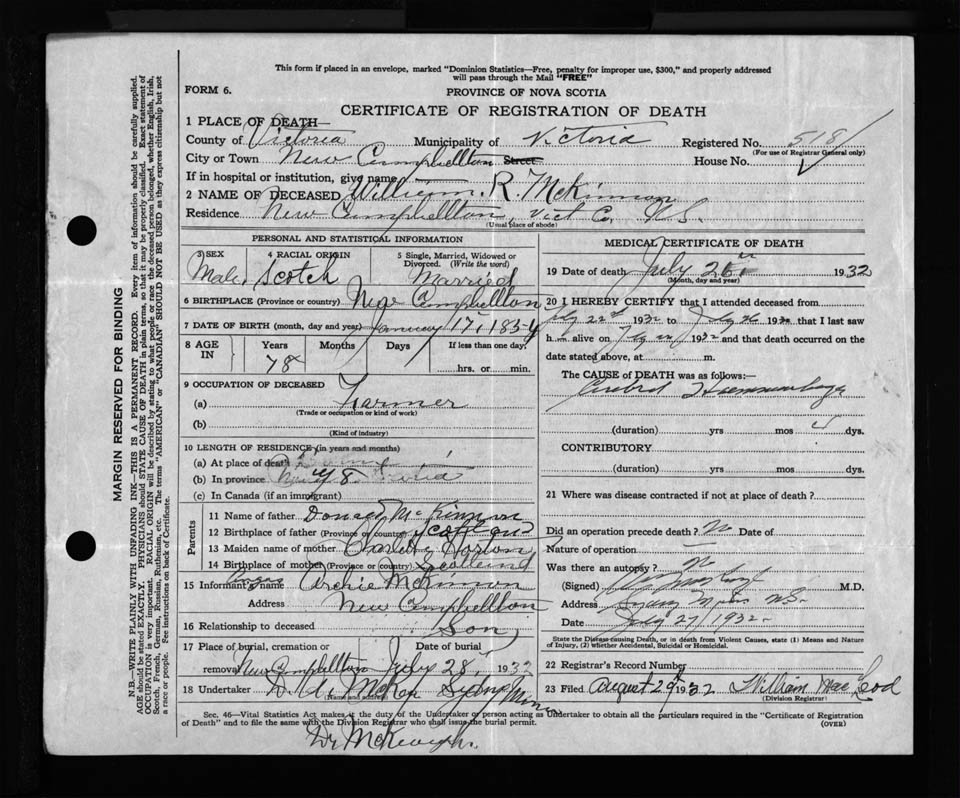 This form if placed in an envelope, marked "Dominion Statistics—Free, penalty for improper use, $300," and properly addressed
will pass through the Mail "FREE"
FORM 6.
PROVINCE OF NOVA SCOTIA
CERTIFICATE OF REGISTRATION OF DEATH
1 PLACE OF DEATH—
County of Victoria Municipality of Victoria Registered No. 518
(For use of Registrar General only)
City or Town New Campbellton Street House No.
If in hospital or institution, give name
2 NAME OF DECEASED William R. McKinnon
Residence New Campbellton, Vict Co. N.S.
(Usual place of abode)
PERSONAL AND STATISTICAL INFORMATION
3 SEX 4 RACIAL ORIGIN 5 Single, Married, Widowed or
Divorced. (Write the word)
Male. Scotch Married
6 BIRTHPLACE (Province or country) New Campbellton
7 DATE OF BIRTH (month, day and year) January 17, 1854
8 AGE IN Years Months Days If less than one day,
78 hrs. or min.
9 OCCUPATION OF DECEASED
(a) Farmer
(Trade or occupation or kind of work)
(b)
(Kind of industry)
10 LENGTH OF RESIDENCE (in years and months)
(a) At place of death
(b) In province 78
(c) In Canada (if an immigrant)
Parents
11 Name of father Donald McKinnon
12 Birthplace of father (Province or country) Scotland
13 Maiden name of mother
14 Birthplace of mother (Province or country) Scotland
15 Informant's name Archie McKinnon
Address New Campbellton
16 Relationship to deceased Son
17 Place of burial, cremation or Date of burial
removal New Campbellton July 28, 1932
18 Undertaker D. A. McKay Sydney Mines
MEDICAL CERTIFICATE OF DEATH
19 Date of death July 26 1932
(Month, day and year)
20 I HEREBY CERTIFY that I attended deceased from
July 22 1932 to July 26 1932 that I last saw
h alive on July 1932 and that death occurred on the
date stated above, at m.
The CAUSE of DEATH was as follows:—
Cerebral Haemorrhage
(duration) yrs mos dys.
CONTRIBUTORY
(duration) yrs mos dys.
21 Where was disease contracted if not at place of death?
Did an operation precede death? No Date of
Nature of operation
Was there an autopsy? No
(Signed) M.D.
Address Sydney Mines N.S.
Date July 27/1932
State the Disease causing Death, or in death from Violent Causes, state (1) Means and Nature
of Injury, (2) whether Accidental, Suicidal or Homicidal.
22 Registrar's Record Number
23 Filed August 29 1932 William MacLeod
(Division Registrar)
Sec. 46—Vital Statistics Act makes it the duty of the Undertaker or person acting as Undertaker to obtain all the particulars required in the "Certificate of Registration
of Death" and to file the same with the Division Registrar who shall issue the burial permit.
(OVER)
Dr McKeough.
MARGIN RESERVED FOR BINDING
N.B.—WRITE PLAINLY WITH UNFADING INK—THIS IS A PERMANENT RECORD. Every item of information should be carefully supplied.
AGE should be stated EXACTLY. PHYSICIANS should STATE CAUSE OF DEATH in plain terms, so that it may be properly classified. Exact statement of
OCCUPATION is very important. RACIAL ORIGIN will be described by stating to what people or race the deceased person belonged, whether English, Irish,
Scotch, French, German, Russian, Ruthenian, etc. The terms "AMERICAN" or "CANADIAN" SHOULD NOT BE USED as they express citizenship but not
a race or people. See instructions on back of Certificate.